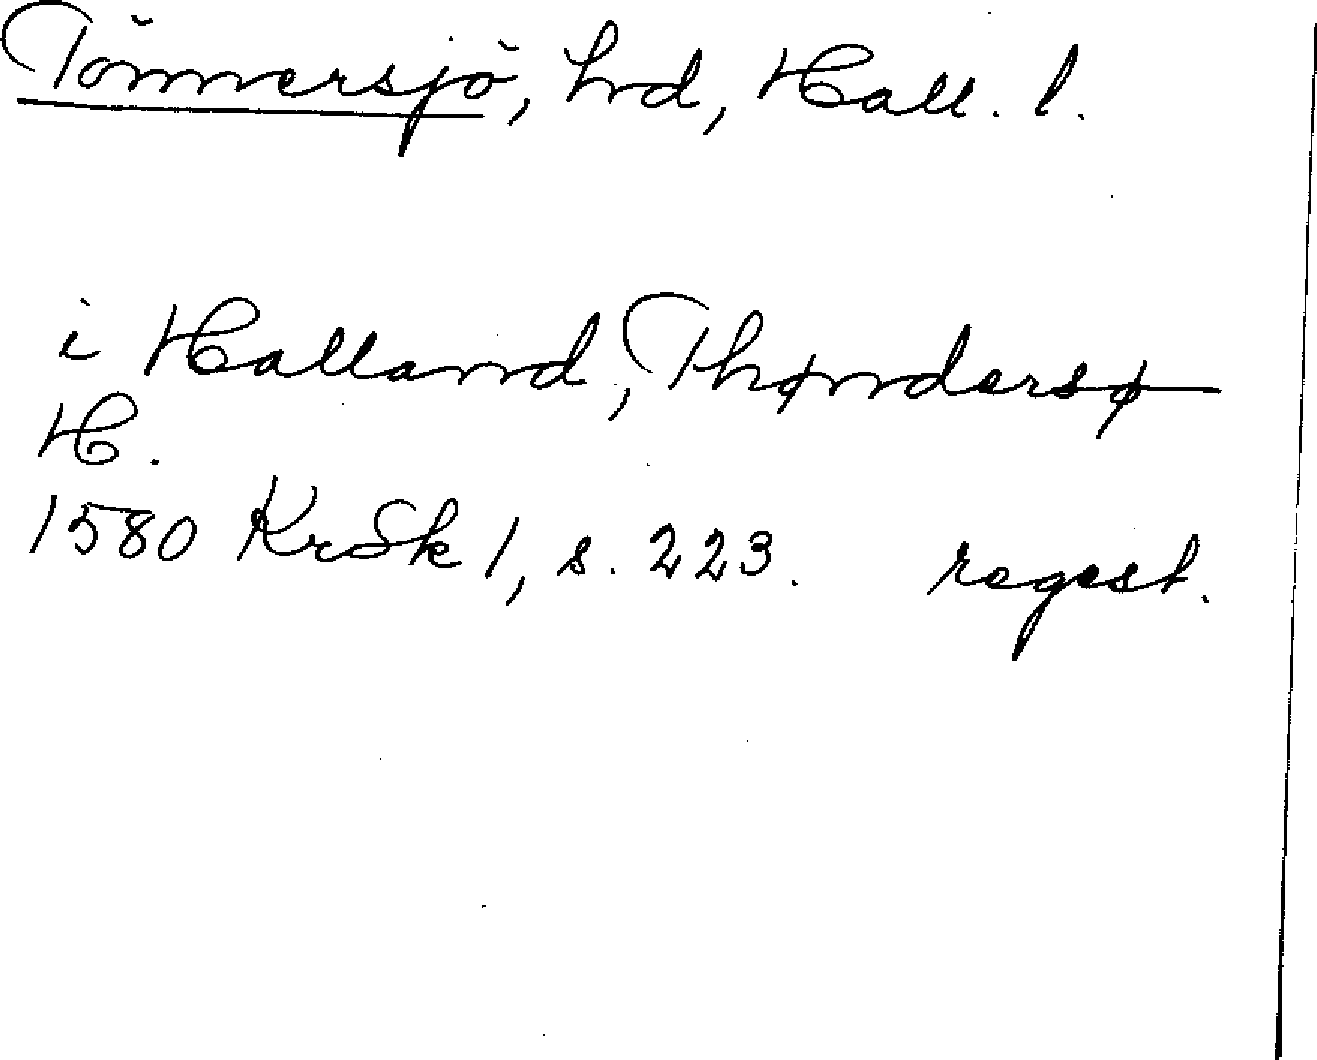 Tönnersjö, hd, Hall. l.
i Halland, Thøndersø
H.
1580 KrSk 1, s. 223. regest.